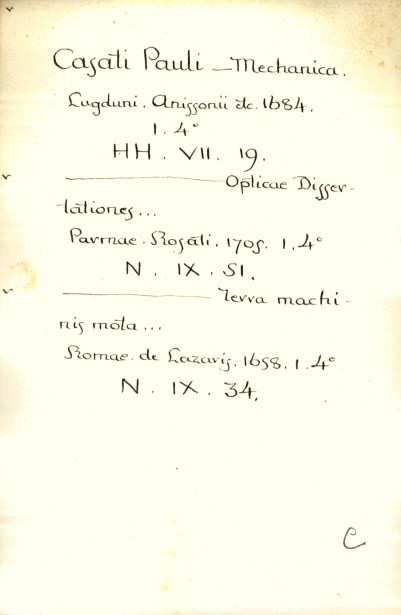 Casati Pauli — Mechanica.
Lugduni. Anissonii &c. 1684.
1. 4°
HH. VII. 19.
———— Opticae Disser-
tationes...
Parmae. Rosati. 1705. 1. 4°
N. IX. 51.
———— Terra machi-
nis mota...
Romae. de Lazaris. 1658. 1. 4°
N. IX. 34.
C